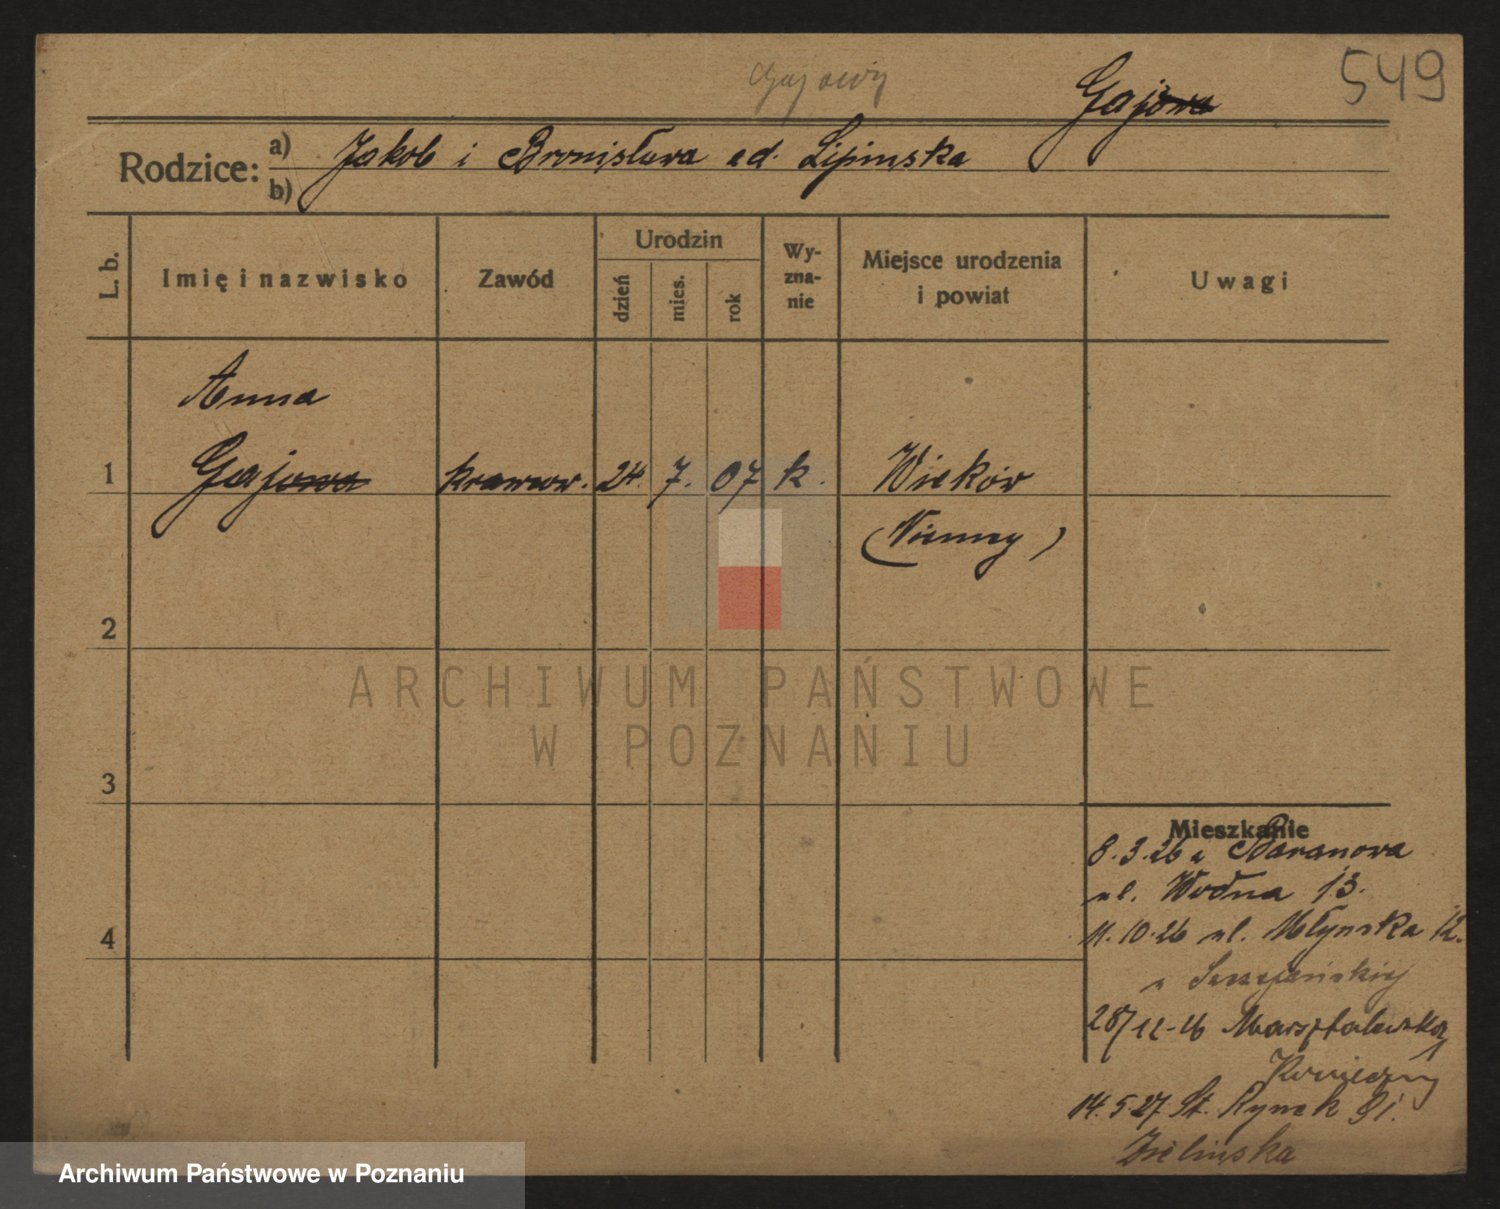 549
Gajowy
Gajowa
Rodzice: a) Jakob i Bronisława od. Lipinska
b)
L. b.
Imię i nazwisko
Zawód
Urodzin
dzień
mies.
rok
Wy-
zna-
nie
Miejsce urodzenia
i powiat
Uwagi
Anna
1 Gajowa krawcow. 24. 7. 07 k. Wieków
(Niemcy)
2
3
4
Mieszkanie
8.3.26 u Baranowa
ul. Wodna 13.
11.10.26 ul. Młynska 12.
u
28/12-26 Marsztalarska
14.5.27. St. Rynek 81.
Zielinska
ARCHIWUM PAŃSTWOWE
W POZNANIU
Archiwum Państwowe w Poznaniu